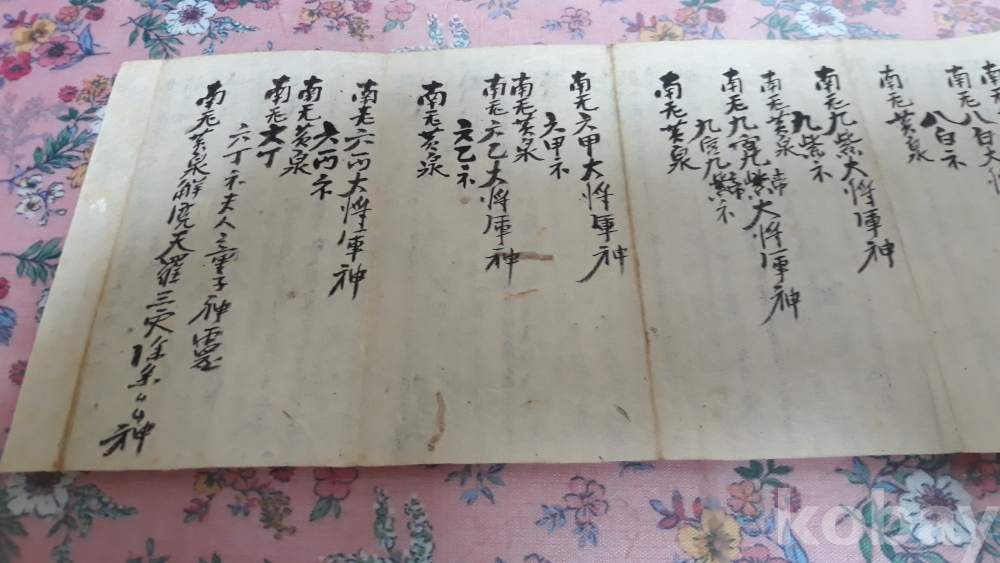 南无八白大
八白ネ
南无黄泉
南无九紫大将軍神
九紫ネ
南无黄泉
南无九宮九紫帝大将軍神
九宮九紫帝ネ
南无黄泉
南无六甲大将軍神
六甲ネ
南无黄泉
南无六乙大将軍神
六乙ネ
南无黄泉
南无六丙大将軍神
六丙ネ
南无黄泉
南无六丁
六丁ネ夫人之童子神霊
南无黄泉解 天羅三灾 神
kobay